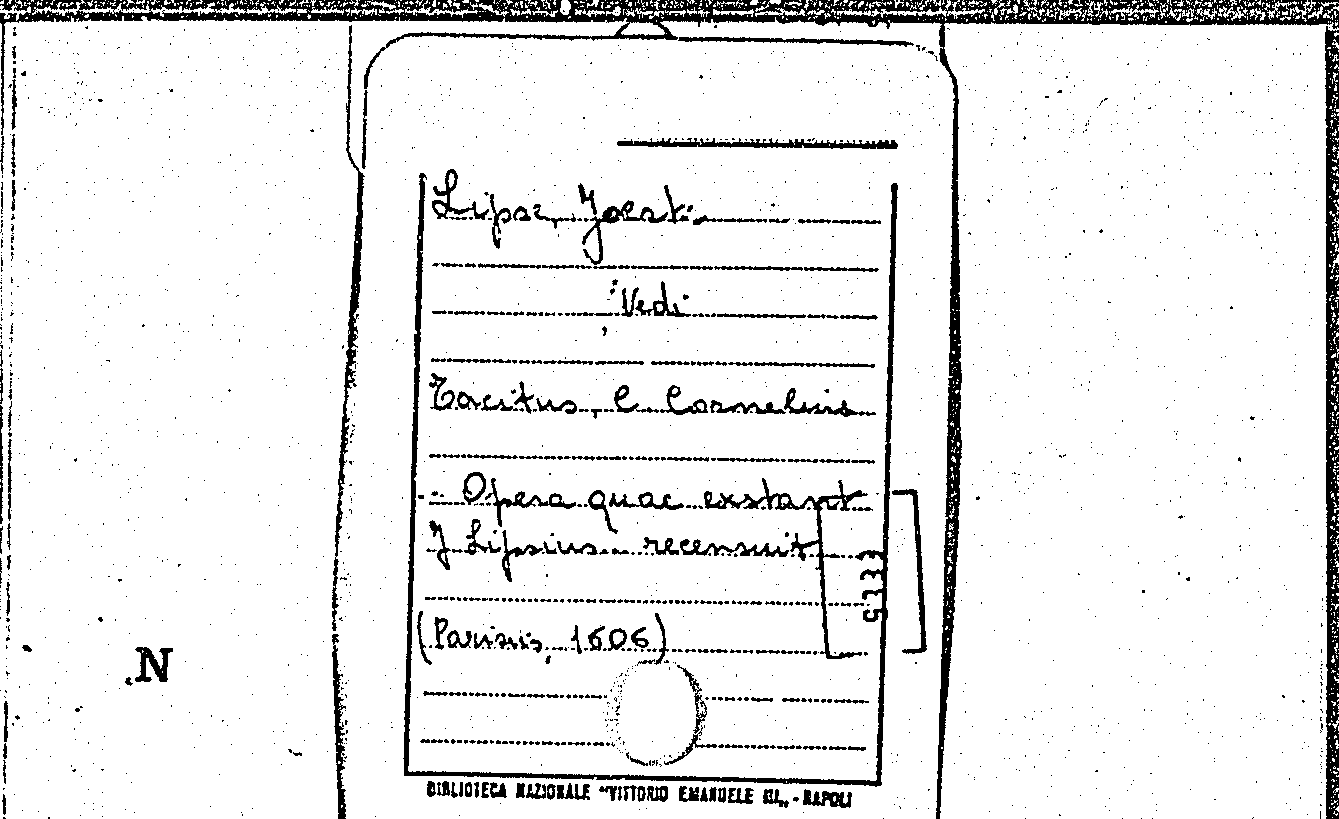 Lipse, Joest.
Vedi
Tacitus, C Cornelius
- Opera quae exstant
J Lipsius recensuit
(Parisiis, 1606)
5333
N
BIBLIOTECA NAZIONALE "VITTORIO EMANUELE III„ - NAPOLI